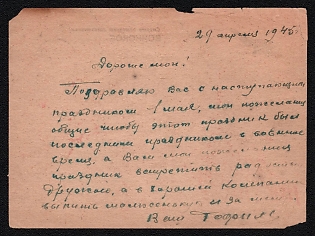 29 апреля 1945
Дорогие мои!
Поздравляю Вас с наступающим
праздником 1 мая, мои пожелания
общие чтобы этот праздник был
последним праздником в военное
время, а Вам мои пожелания
праздник встретить
дружно, а в хорошей компании
выпить и за меня
Ваш